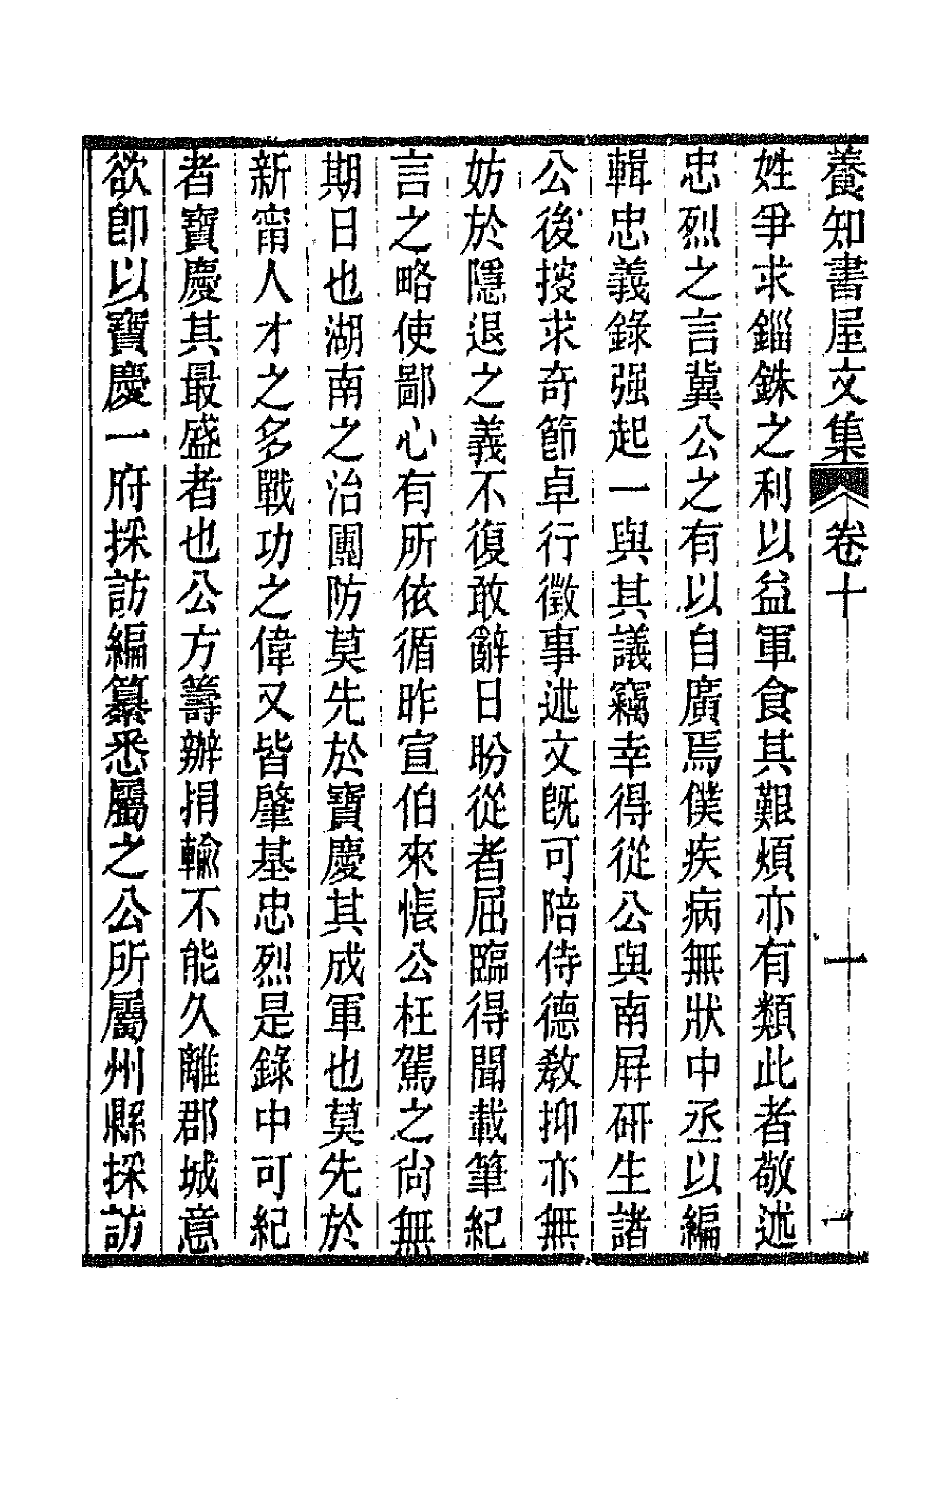 養知書屋文集 卷十 一
姓爭求錙銖之利以益軍食其艱煩亦有類此者敬述
忠烈之言冀公之有以自廣焉僕疾病無狀中丞以編
輯忠義錄强起一與其議竊幸得從公與南屏研生諸
公後搜求奇節卓行徵事述文旣可陪侍德敎抑亦無
妨於隱退之義不復敢辭日盼從者屈臨得聞載筆紀
言之略使鄙心有所依循昨宣伯來悵公枉駕之尙無
期日也湖南之治團防莫先於寶慶其成軍也莫先於
新甯人才之多戰功之偉又皆肇基忠烈是錄中可紀
者寶慶其最盛者也公方籌辦捐輸不能久離郡城意
欲卽以寶慶一府採訪編纂悉屬之公所屬州縣採訪